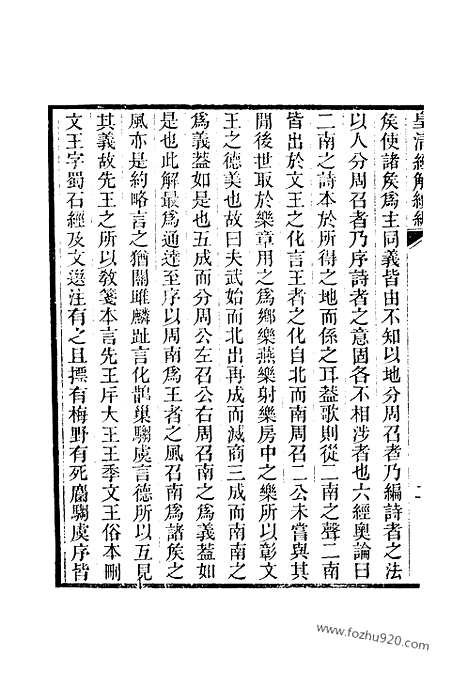 皇清經解續編
矦使諸矦爲主同義皆由不知以地分周召者乃編詩者之法
以人分周召者乃序詩者之意固各不相涉者也六經奧論曰
二南之詩本於所得之地而係之耳葢歌則從二南之聲二南
皆出於文王之化言王者之化自北而南周召二公未嘗與其
閒後世取於樂章用之爲鄉樂燕樂射樂房中之樂所以彰文
王之德美也故曰夫武始而北出再成而滅商三成而南南之
爲義葢如是也五成而分周公左召公右周召南之爲義葢如
是也此解最爲通達至序以周南爲王者之風召南爲諸矦之
風亦是約略言之猶關雎麟趾言化鵲巢騶虞言德所以互見
其義故先王之所以敎箋本言先王斥大王王季文王俗本刪
文王字蜀石經及文選注有之且摽有梅野有死麕騶虞序皆
www.fozhu920.com